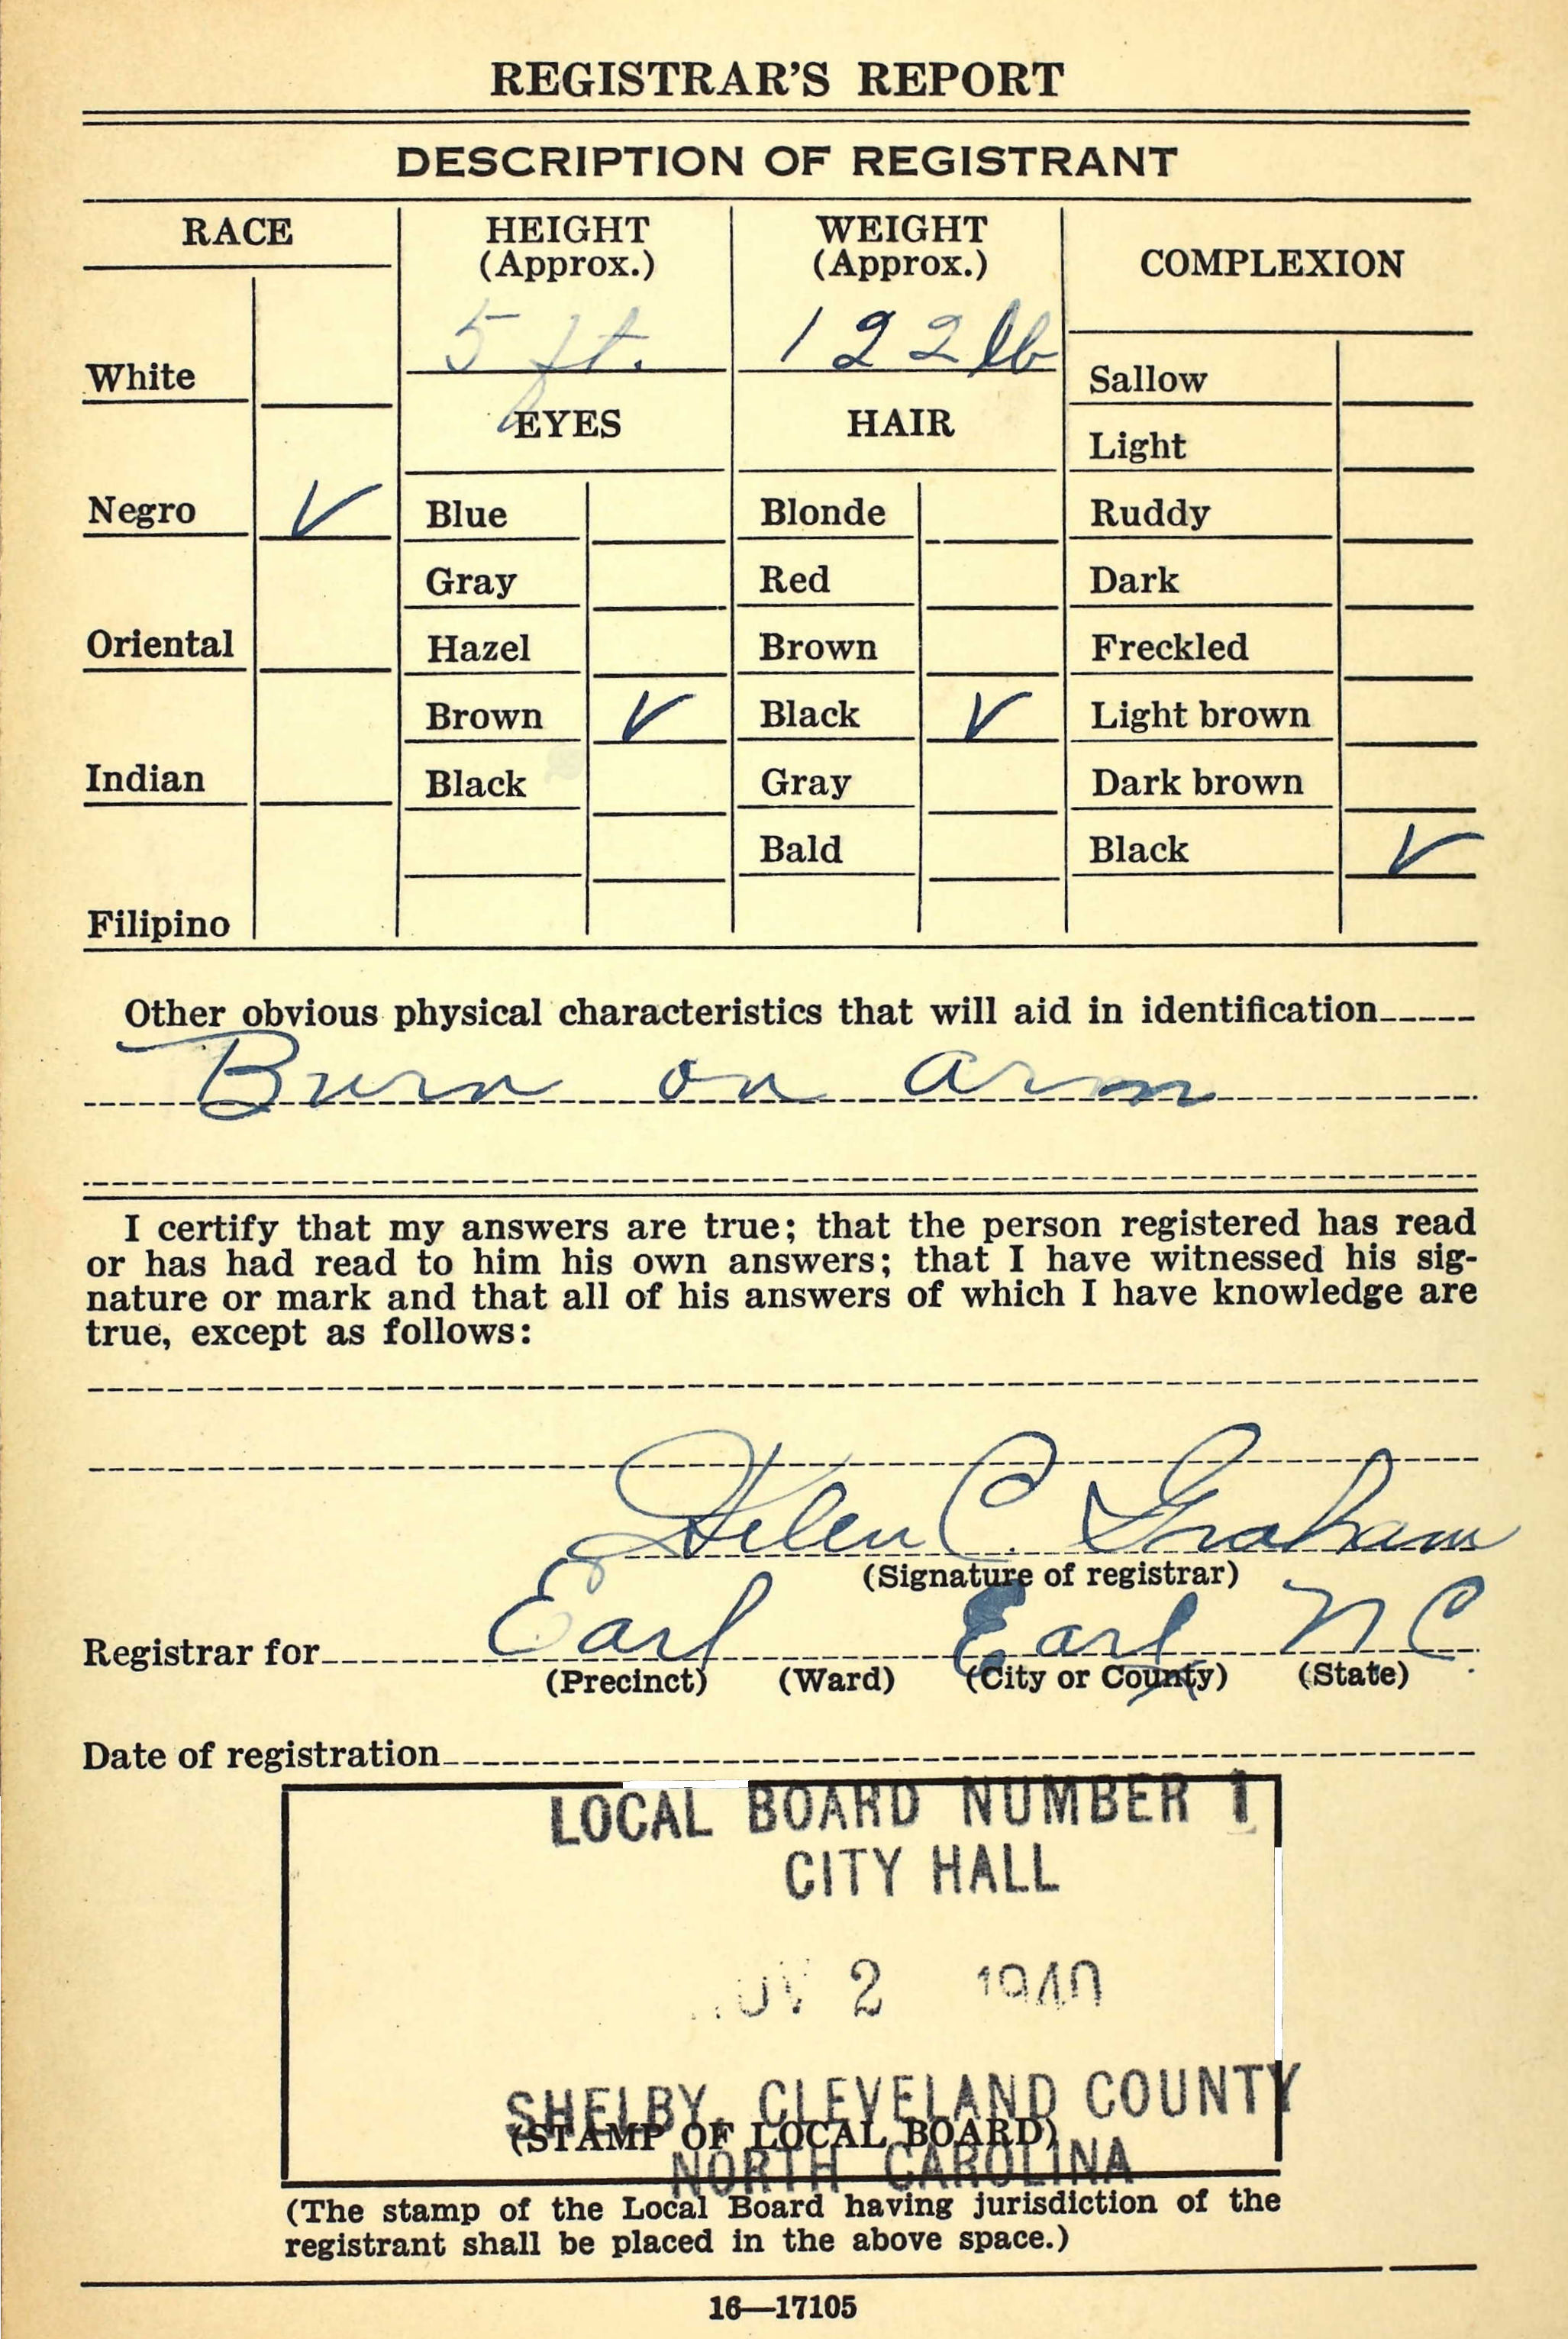 REGISTRAR'S REPORT
DESCRIPTION OF REGISTRANT
RACE
HEIGHT
(Approx.)
WEIGHT
(Approx.)
COMPLEXION
5 ft.
122 lb
White
Sallow
EYES
HAIR
Light
Negro ✓
Blue
Blonde
Ruddy
Gray
Red
Dark
Oriental
Hazel
Brown
Freckled
Brown ✓
Black ✓
Light brown
Indian
Black
Gray
Dark brown
Bald
Black ✓
Filipino
Other obvious physical characteristics that will aid in identification
Burn on arm
I certify that my answers are true; that the person registered has read
or has had read to him his own answers; that I have witnessed his sig-
nature or mark and that all of his answers of which I have knowledge are
true, except as follows:
Helen C. Graham
(Signature of registrar)
Registrar for Earl Earl N C.
(Precinct) (Ward) (City or County) (State)
Date of registration
LOCAL BOARD NUMBER 1
CITY HALL
NOV 2 1940
SHELBY, CLEVELAND COUNTY
(STAMP OF LOCAL BOARD)
NORTH CAROLINA
(The stamp of the Local Board having jurisdiction of the
registrant shall be placed in the above space.)
16—17105